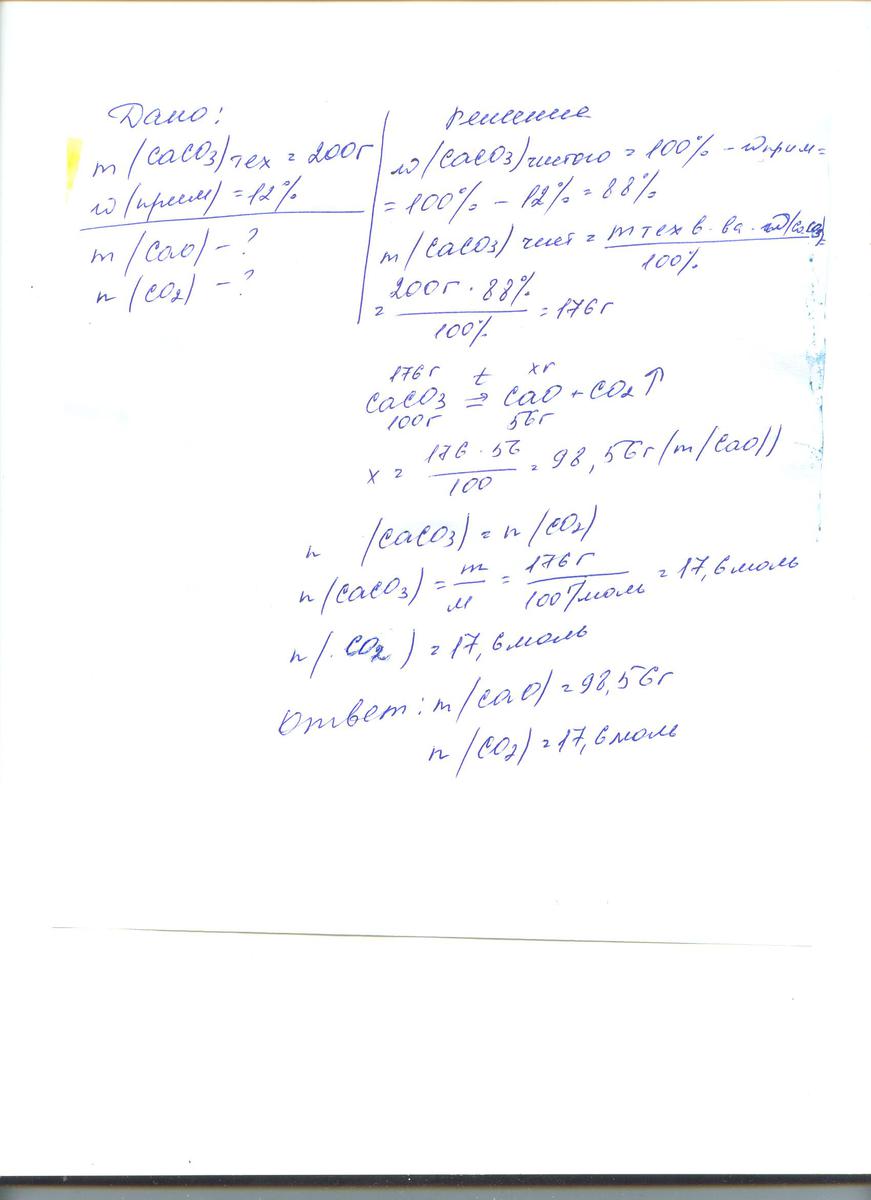 Дано:
m(CaCO3)тех = 200г
w(прим) = 12%
m(CaO) - ?
n(CO2) - ?
Решение
w(CaCO3)чистого = 100% - wприм =
= 100% - 12% = 88%
m(CaCO3)чист = mтех в-ва · w(CaCO3) / 100% =
= 200г · 88% / 100% = 176г
176г t xг
CaCO3 ⇒ CaO + CO2↑
100г 56г
x = 176 · 56 / 100 = 98,56г (m(CaO))
n (CaCO3) = n(CO2)
n(CaCO3) = m / M = 176г / 100г/моль = 17,6моль
n(CO2) = 17,6моль
Ответ: m(CaO) = 98,56г
n(CO2) = 17,6моль